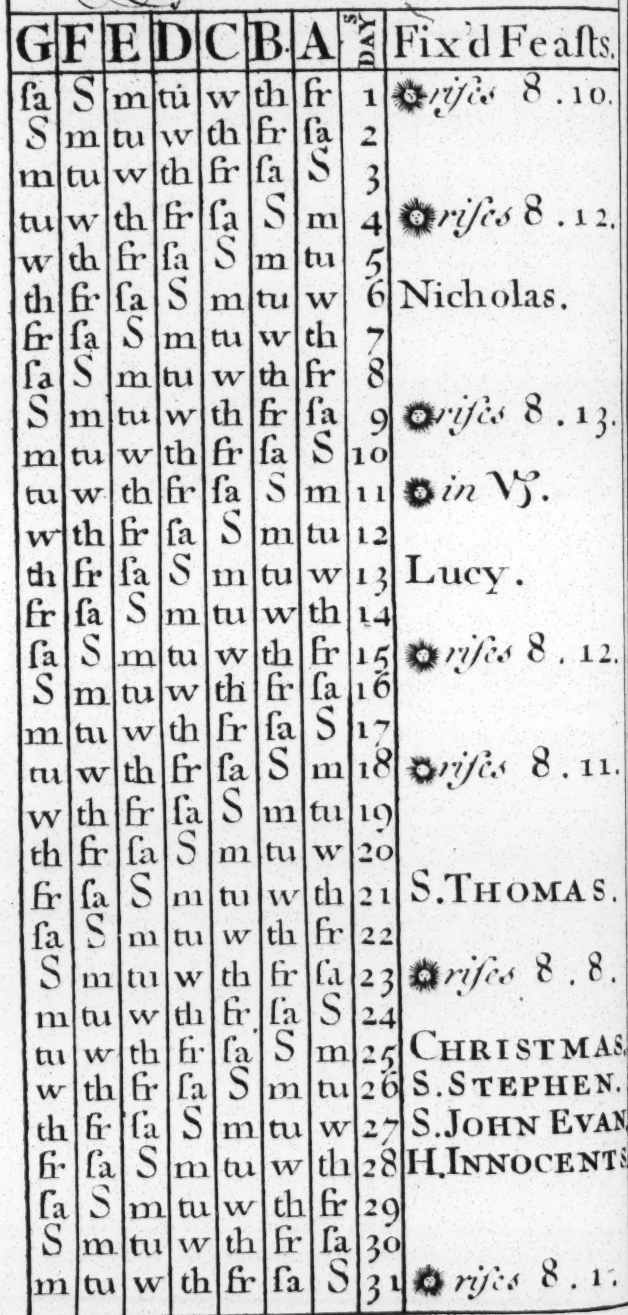 G F E D C B. A DAYS Fix'd Feaſts.
ſa S m tu w th fr 1 riſes 8.10.
S m tu w th fr ſa 2
m tu w th fr ſa S 3
tu w th fr ſa S m 4 riſes 8.12.
w th fr ſa S m tu 5
th fr ſa S m tu w 6 Nicholas.
fr ſa S m tu w th 7
ſa S m tu w th fr 8
S m tu w th fr ſa 9 riſes 8.13.
m tu w th fr ſa S 10
tu w th fr ſa S m 11 in ♑.
w th fr ſa S m tu 12
th fr ſa S m tu w 13 Lucy.
fr ſa S m tu w th 14
ſa S m tu w th fr 15 riſes 8.12.
S m tu w th fr ſa 16
m tu w th fr ſa S 17
tu w th fr ſa S m 18 riſes 8.11.
w th fr ſa S m tu 19
th fr ſa S m tu w 20
fr ſa S m tu w th 21 S.THOMAS.
ſa S m tu w th fr 22
S m tu w th fr ſa 23 riſes 8.8.
m tu w th fr ſa S 24
tu w th fr ſa S m 25 CHRISTMAS.
w th fr ſa S m tu 26 S.STEPHEN.
th fr ſa S m tu w 27 S.JOHN EVAN
fr ſa S m tu w th 28 H.INNOCENTS
ſa S m tu w th fr 29
S m tu w th fr ſa 30
m tu w th fr ſa S 31 riſes 8.1.